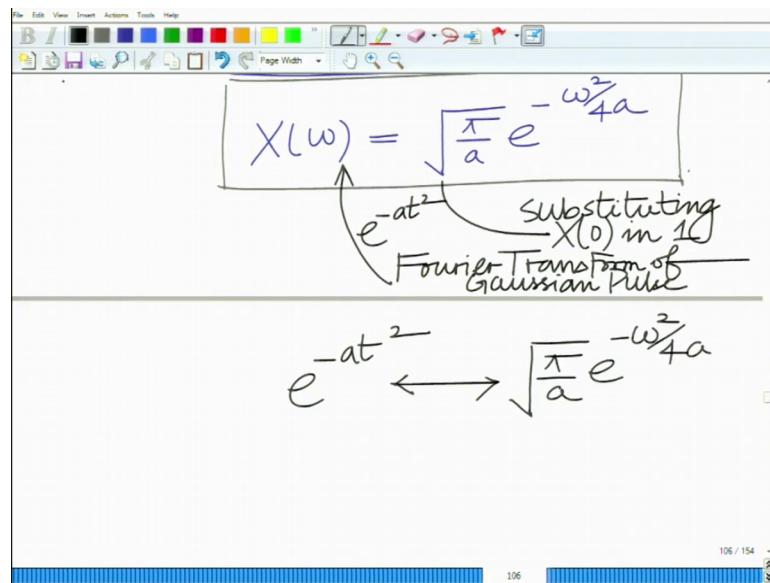 File Edit View Insert Actions Tools Help
B I
Page Width
X(ω) = √(π/a) e^(-ω²/4a)
e^(-at²)
substituting
X(0) in 1
Fourier Transform of
Gaussian Pulse
e^(-at²) ↔ √(π/a) e^(-ω²/4a)
106 / 154
106